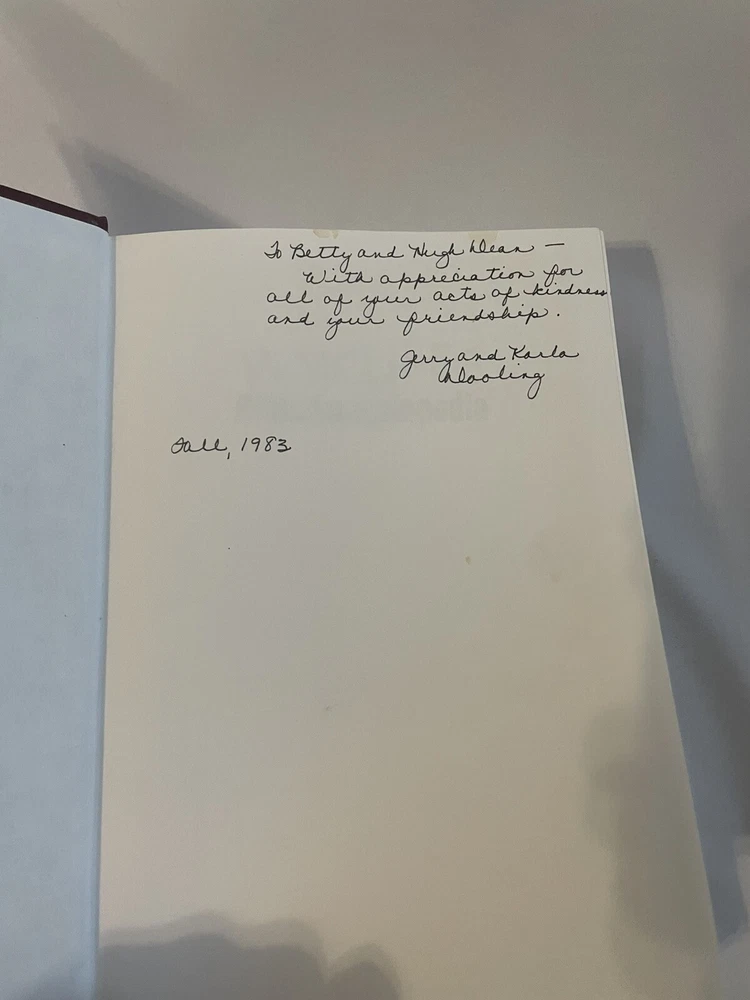 To Betty and Hugh Dean —
With appreciation for
all of your acts of kindness
and your friendship.
Jerry and Karla
Dooling
Fall, 1983